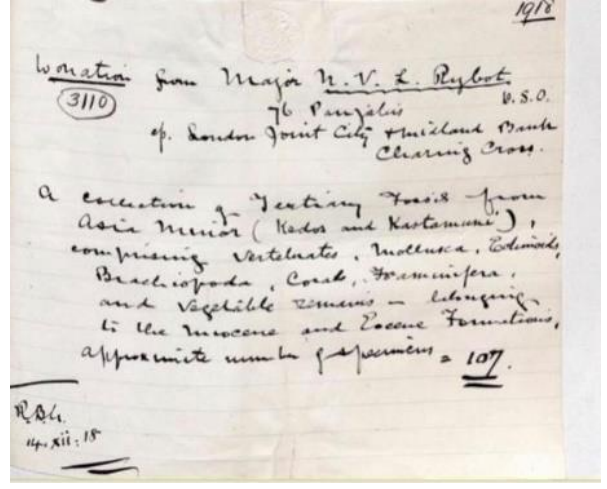 1918
Donation from Major N. V. L. Rybot
3110
D.S.O.
76 Punjabis
c/o. London Joint City & Midland Bank
Charing Cross.
A collection of Tertiary Fossils from
Asia Minor (Kedos and Kastamuni),
comprising Vertebrates, Mollusca, Echinoids,
Brachiopoda, Corals, Foraminifera,
and Vegetable remains – belonging
to the Miocene and Eocene Formations,
approximate number of specimens = 107.
14.xii.18